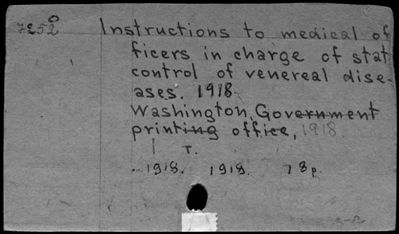 7252 Instructions to medical of
ficers in charge of stat
control of venereal dise-
ases. 1918.
Washington, Government
printing office, 1918.
T.
1918. 1918. 78p.